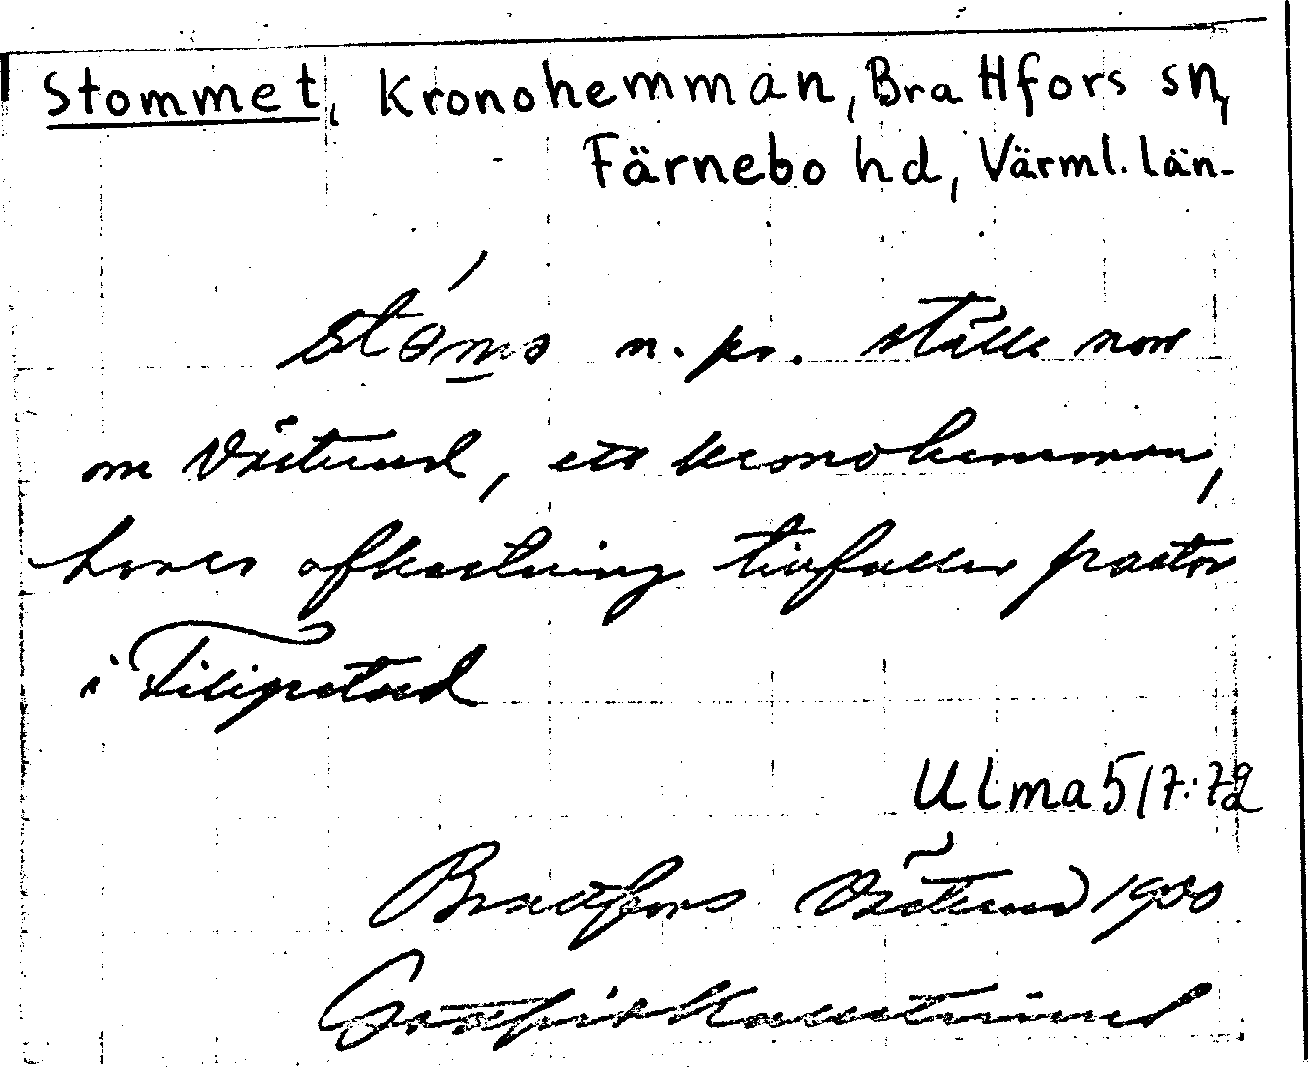 Stommet, Kronohemman, Brattfors sn,
Färnebo hd, Värml. län.
stómo n. pr. ställe norr
om Västund, ett kronohemman,
hvars afkastning tillfaller pastor
i Filipstad
Ulma 517:72
Brattfors 1900